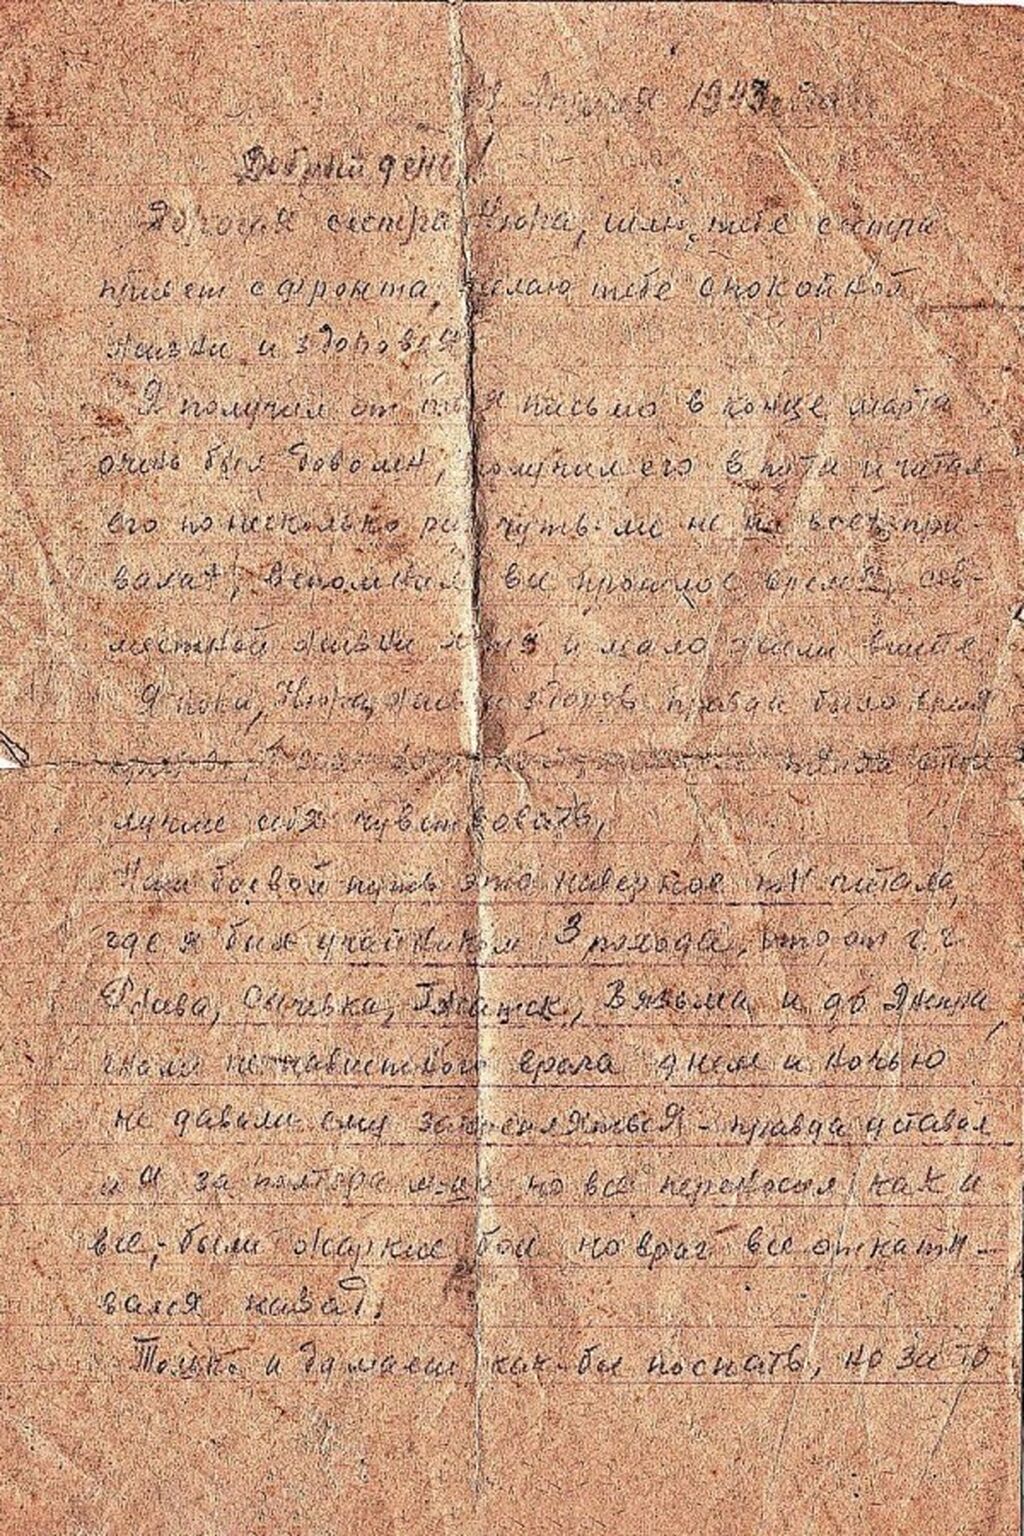 Апреля 1943 года
Добрый день!
Дорогая сестра Нюра, шлю тебе сестра
привет с фронта, желаю тебе спокойной
жизни и здоровья
Я получил от тебя письмо в конце марта
очень был доволен, получил его в пути и читал
его по несколько раз чуть-ли не на всех при-
валах, вспоминал все прошлое время, сов-
местной жизни хотя и мало жили вместе
Я пока, Нюра, жив и здоров правда было время
лучше себя чувствовать,
Наш боевой путь это наверное ты читала,
где я был участником 3 похода, это от г.г.
Ржева, Сычевка, Гжатск, Вязьма и до Днепра,
гнали ненавистного врага днем и ночью
не давали ему закрепляться - правда уставал
и я за полтора м-ца но все переносил как и
все, были жаркие бои но враг все откаты-
вался назад.
Только и думаешь как-бы поспать, но за то